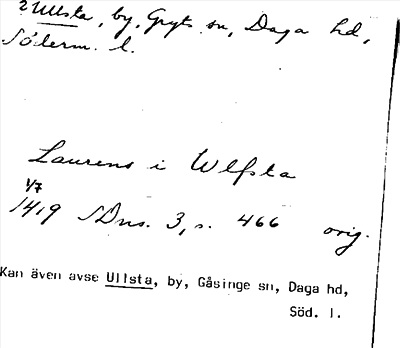 ? Ullsta, by, Gryts sn, Daga hd,
Söderm. l.
Laurens i Wlfsta
1/7
1419 SDns. 3, s. 466 orig.
Kan även avse Ullsta, by, Gåsinge sn, Daga hd,
Söd. l.